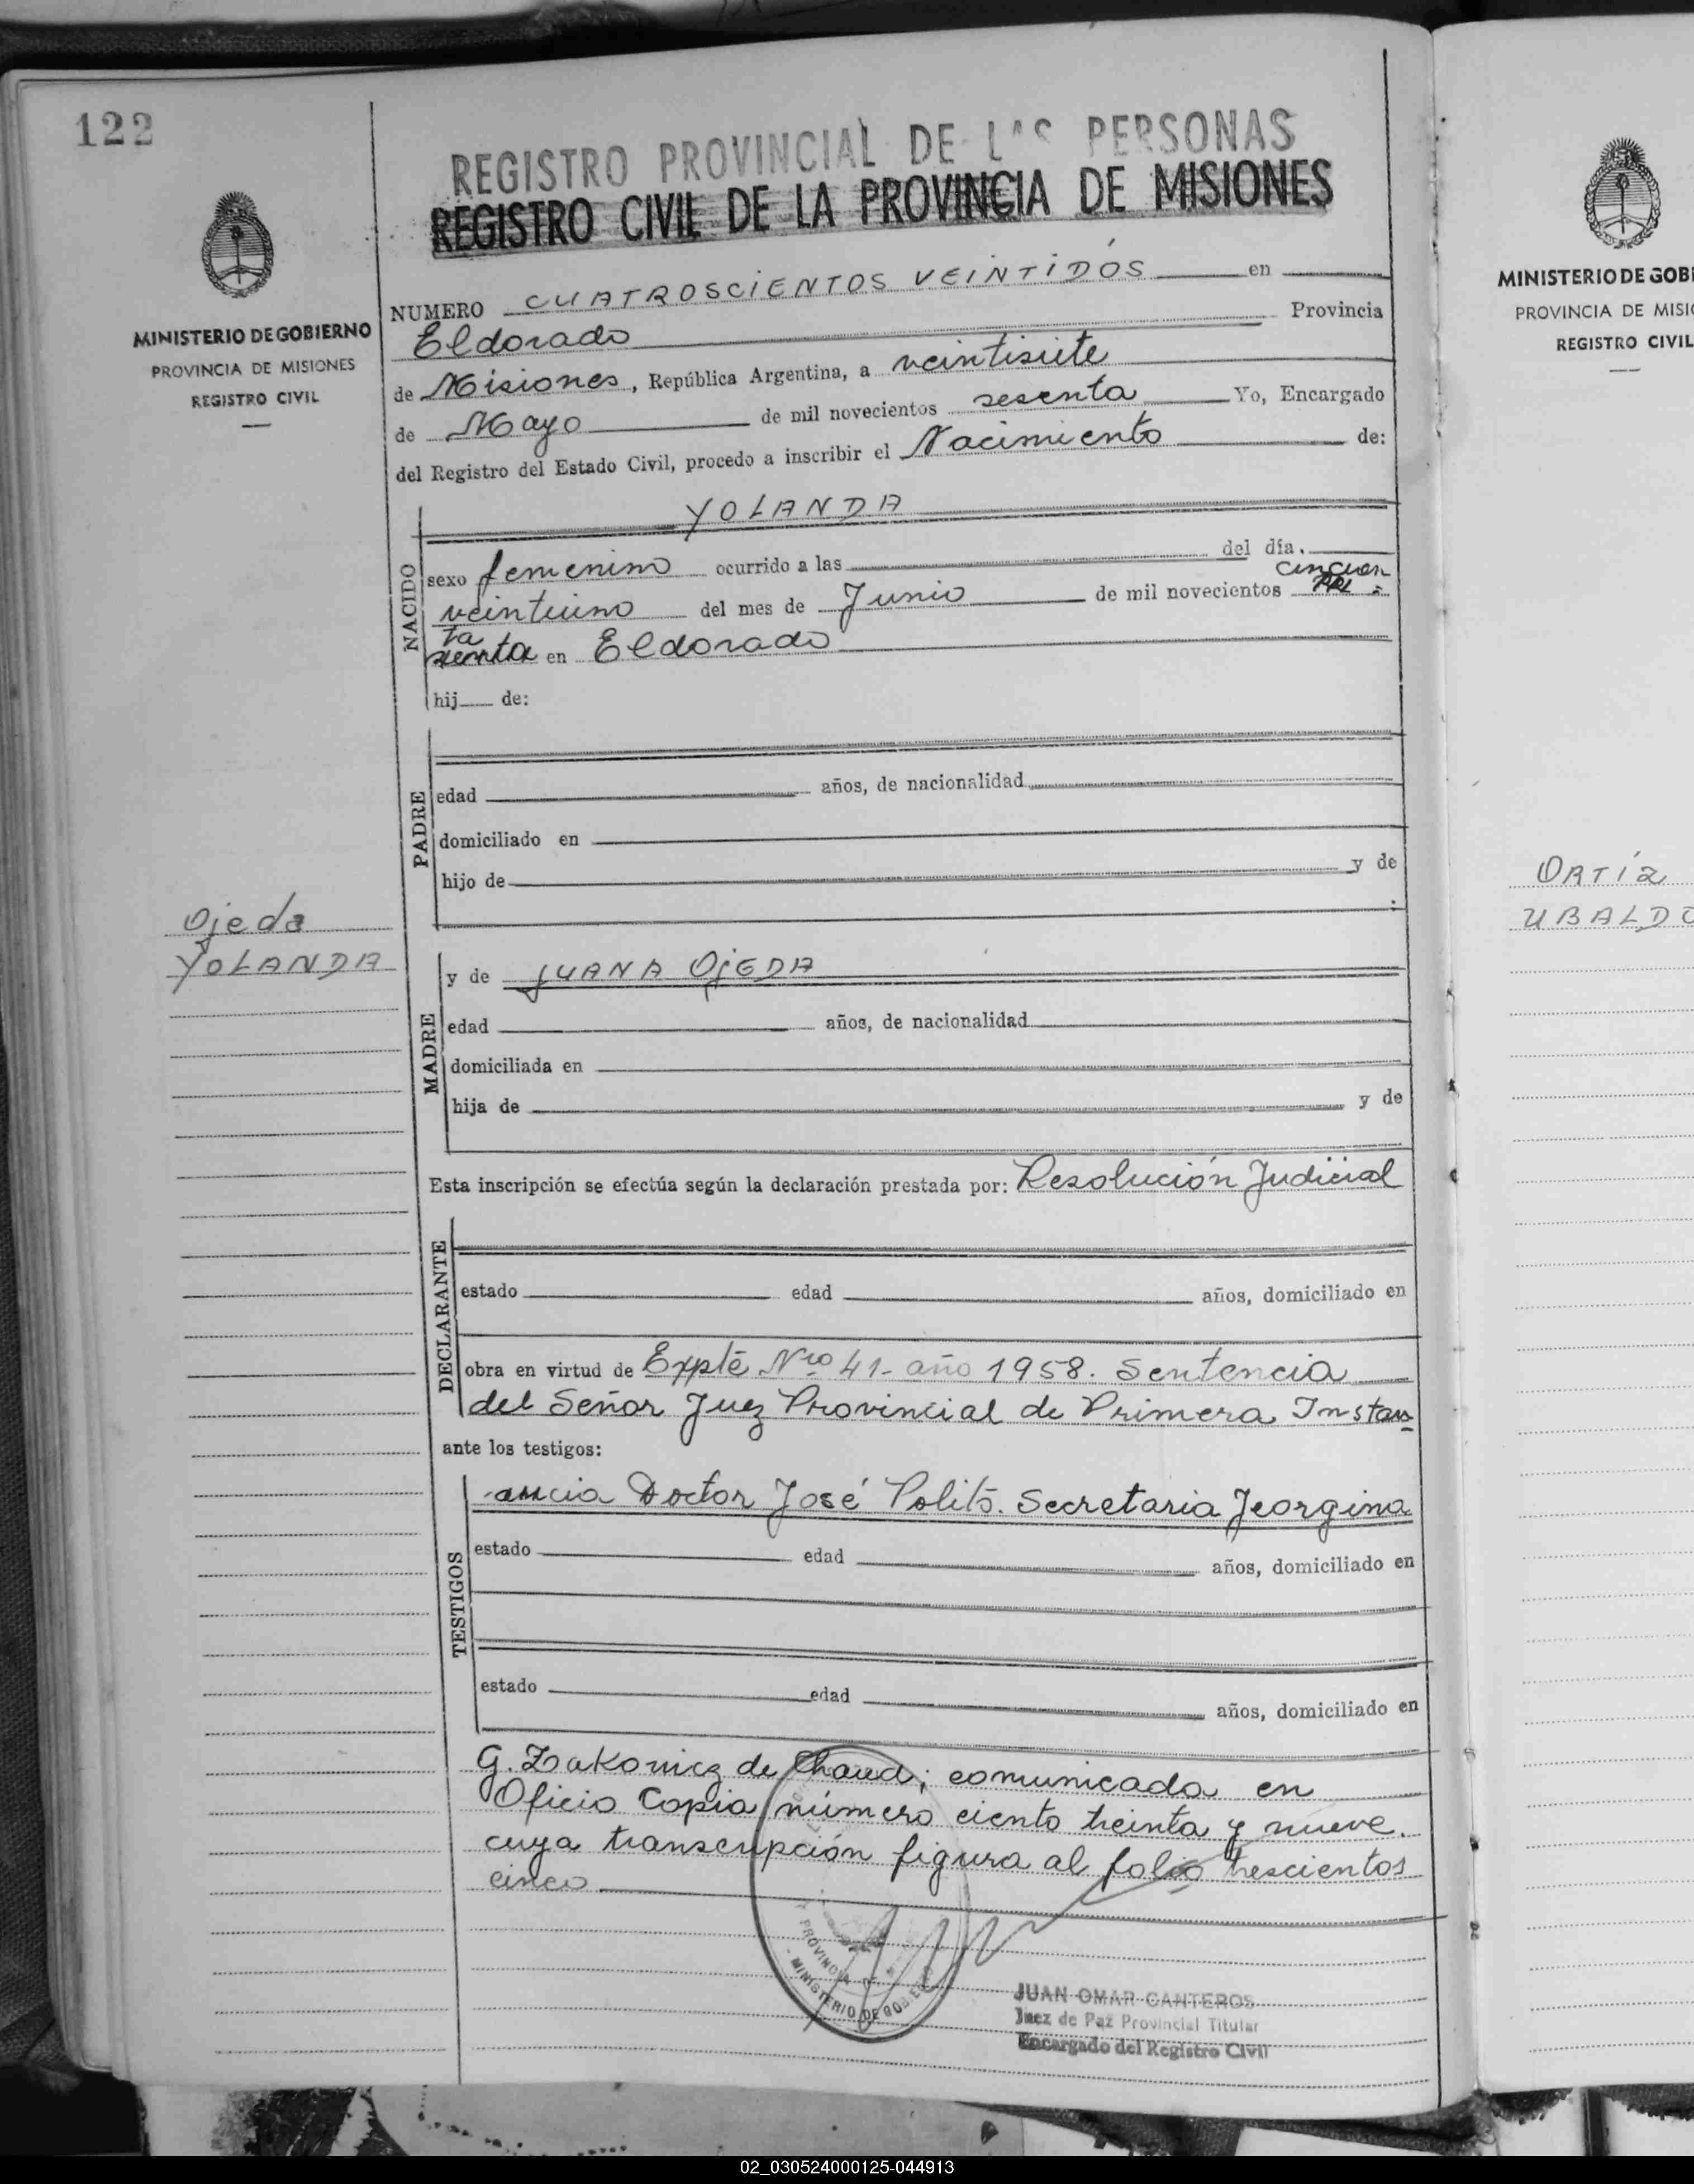 122
REGISTRO PROVINCIAL DE LAS PERSONAS
REGISTRO CIVIL DE LA PROVINCIA DE MISIONES
MINISTERIO DE GOBIERNO
PROVINCIA DE MISIONES
REGISTRO CIVIL
NUMERO CUATROSCIENTOS VEINTIDÓS en
Eldorado Provincia
de Misiones, República Argentina, a veintisiete
de Mayo de mil novecientos sesenta Yo, Encargado
del Registro del Estado Civil, procedo a inscribir el Nacimiento de:
YOLANDA
NACIDO
sexo femenino ocurrido a las del día
veintiuno del mes de Junio de mil novecientos cincuen
ta en Eldorado
hij de:
PADRE
edad años, de nacionalidad
domiciliado en
hijo de y de
:
Ojeda
YOLANDA
MADRE
y de JUANA OJEDA
edad años, de nacionalidad
domiciliada en
hija de y de
Esta inscripción se efectúa según la declaración prestada por: Resolución Judicial
DECLARANTE
estado edad años, domiciliado en
obra en virtud de Expte Nro 41- año 1958. Sentencia
del Señor Juez Provincial de Primera Instan
ante los testigos:
TESTIGOS
cia Doctor José Polito. Secretaria Jeorgina
estado edad años, domiciliado en
estado edad años, domiciliado en
G. Zakonicz de Chaud; comunicada en
Oficio Copia número ciento treinta y nueve.
cuya transcripción figura al folio trescientos
cinco
PROVINCIA DE
MINISTERIO DE GOBIERNO
JUAN OMAR CANTEROS
Juez de Paz Provincial Titular
Encargado del Registro Civil
MINISTERIO DE GOBI
PROVINCIA DE MISIO
REGISTRO CIVIL
ORTÍZ
UBALDO
02_030524000125-044913